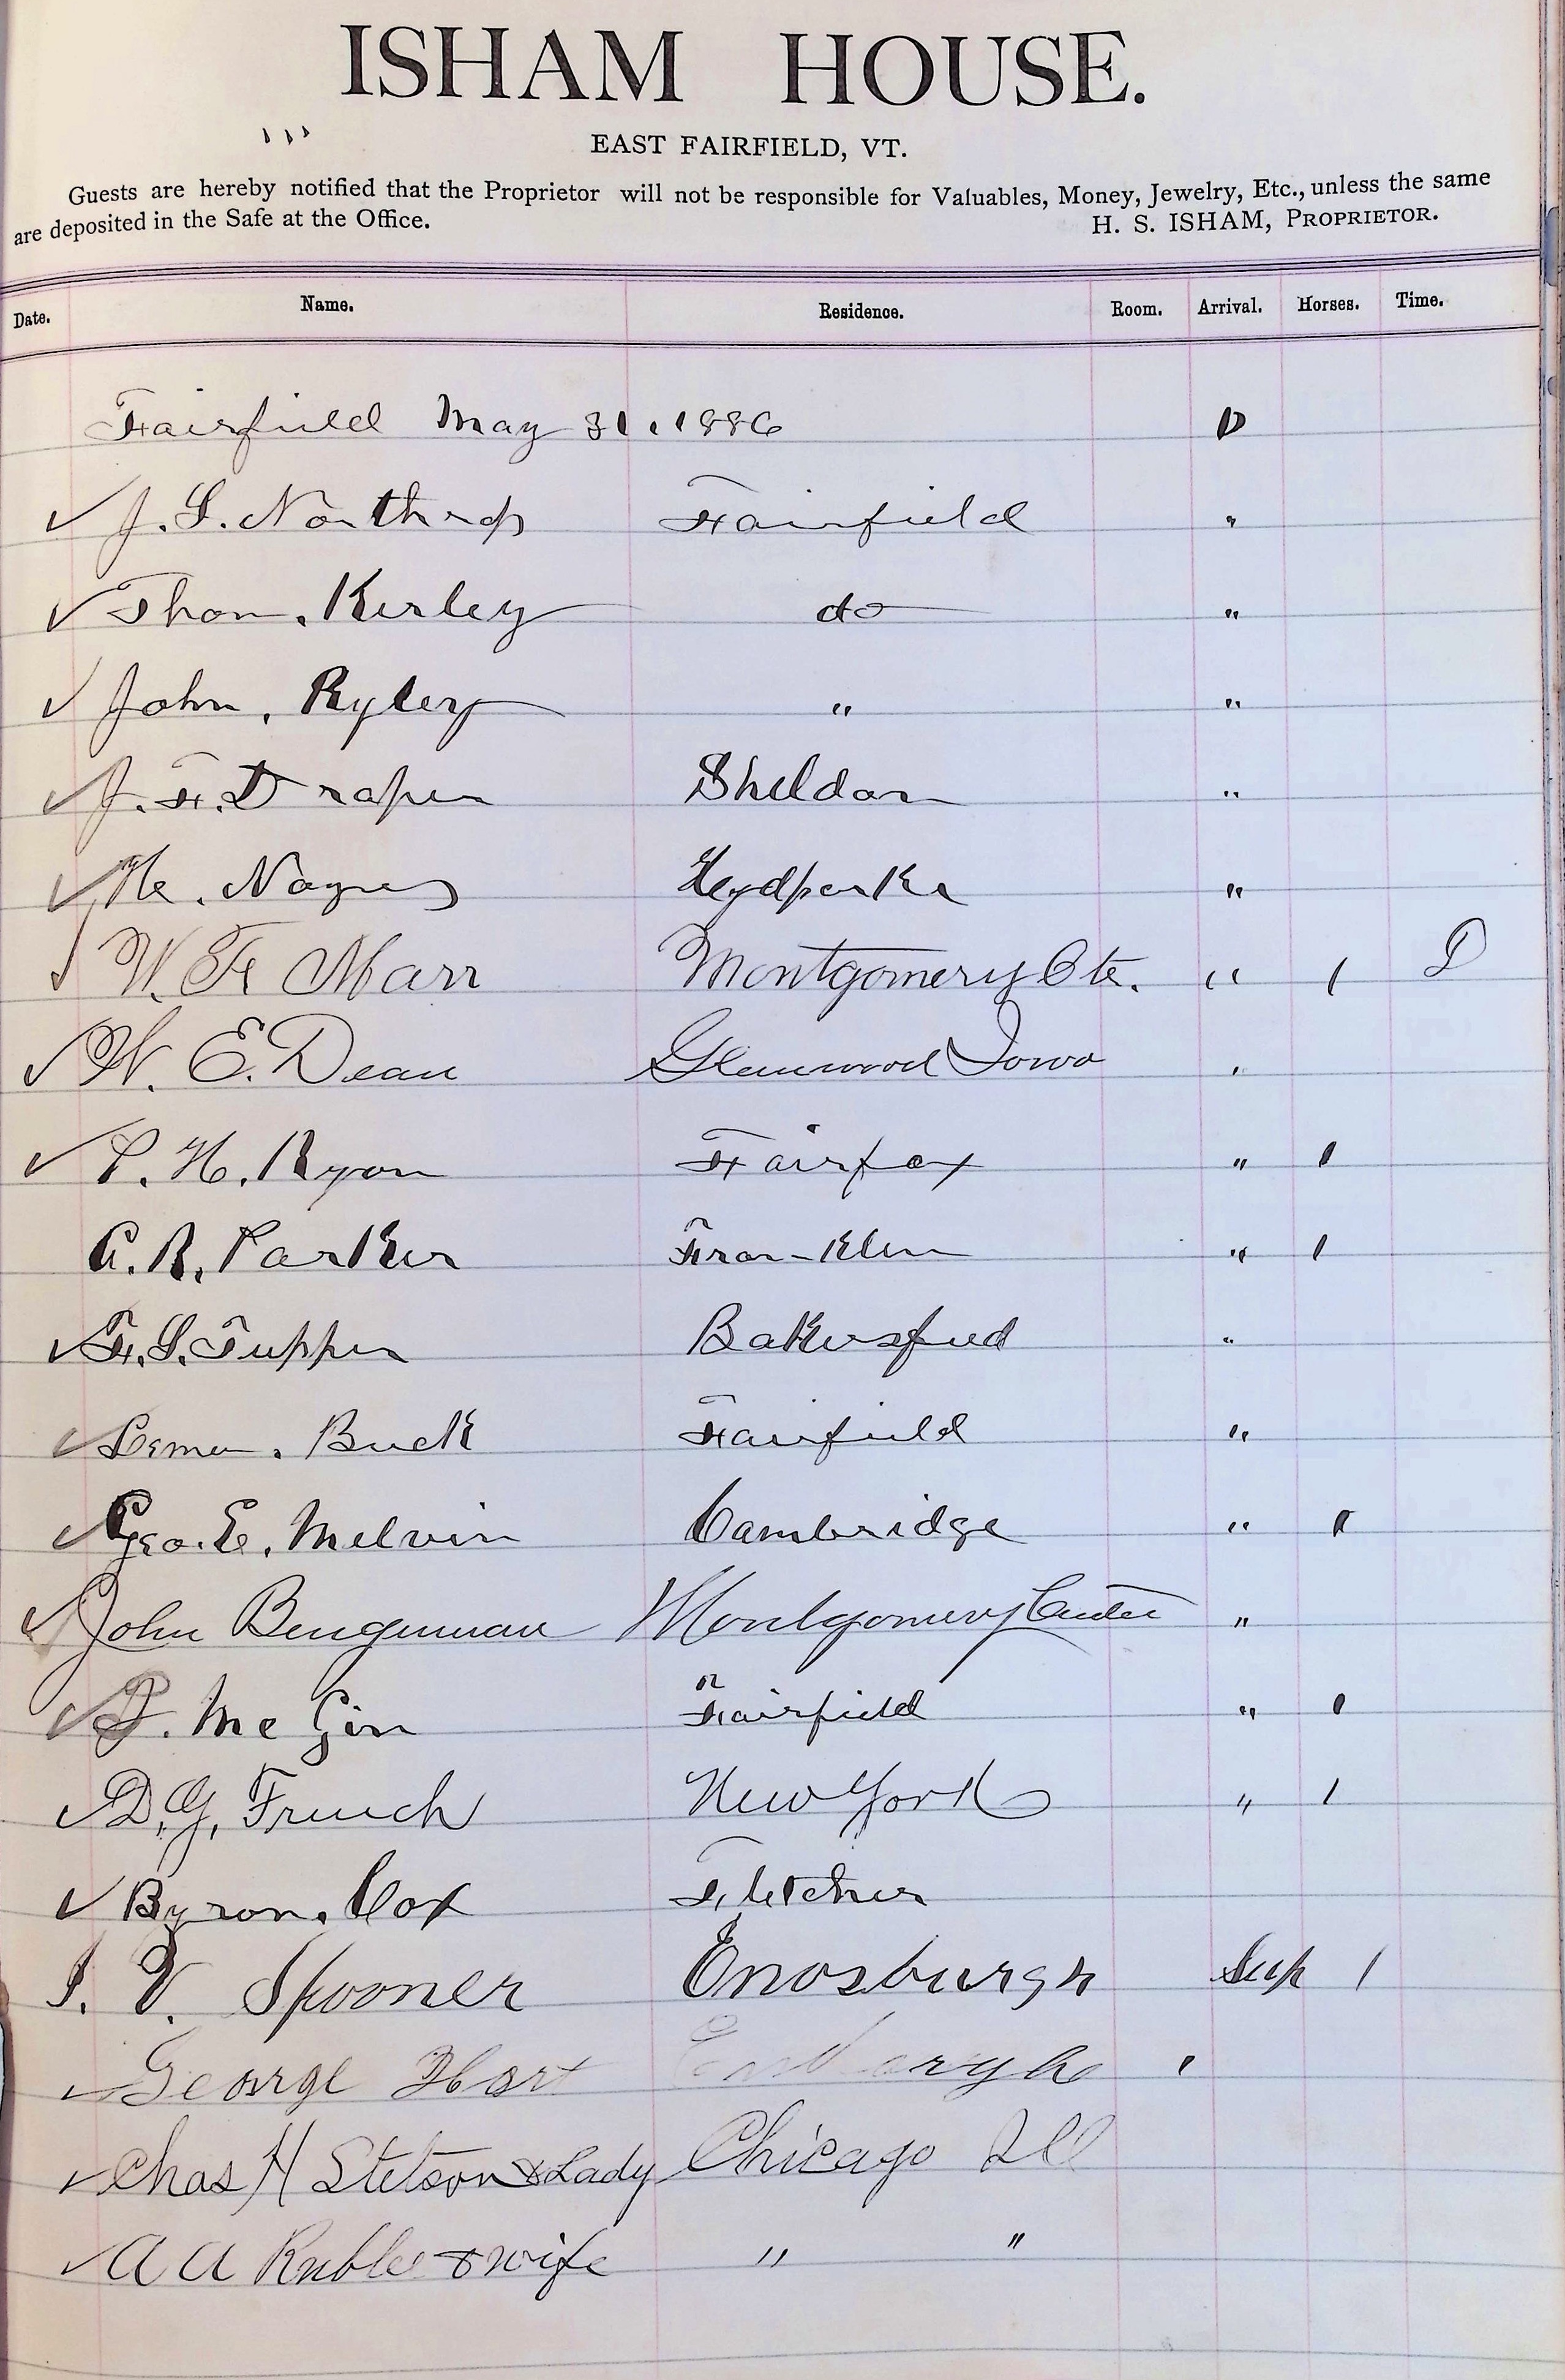 ISHAM HOUSE.
EAST FAIRFIELD, VT.
Guests are hereby notified that the Proprietor will not be responsible for Valuables, Money, Jewelry, Etc., unless the same
are deposited in the Safe at the Office. H. S. ISHAM, PROPRIETOR.
Date. Name. Residence. Room. Arrival. Horses. Time.
Fairfield May 31. 1886 D
✓ J. S. Northrop Fairfield "
✓ Thom. Kerley do "
✓ John. Ryley " "
✓ J. F. Draper Sheldon "
✓ Noyes Hydparke "
✓ W. F. Marr Montgomery Ctr. " 1 D
✓ W. E. Dean Glenwood Iowa "
✓ P. H. Ryon Fairfax " 1
A. R. Parker Fran-klin " 1
✓ F. S. Tupper Bakersfied "
✓ Buck Fairfield "
✓ Geo. E. Melvin Cambridge " 1
✓ John Bengerman Montgomery Center "
✓ P. Mc Gin Fairfield " 1
✓ D. G. French New York " 1
✓ Byron. Cox Fletcher
I. V. Spooner Enosburgh Sup 1
✓ George Hart "
✓ Chas H Stetson & Lady Chicago Ill
✓ A A Ruble & wife " "